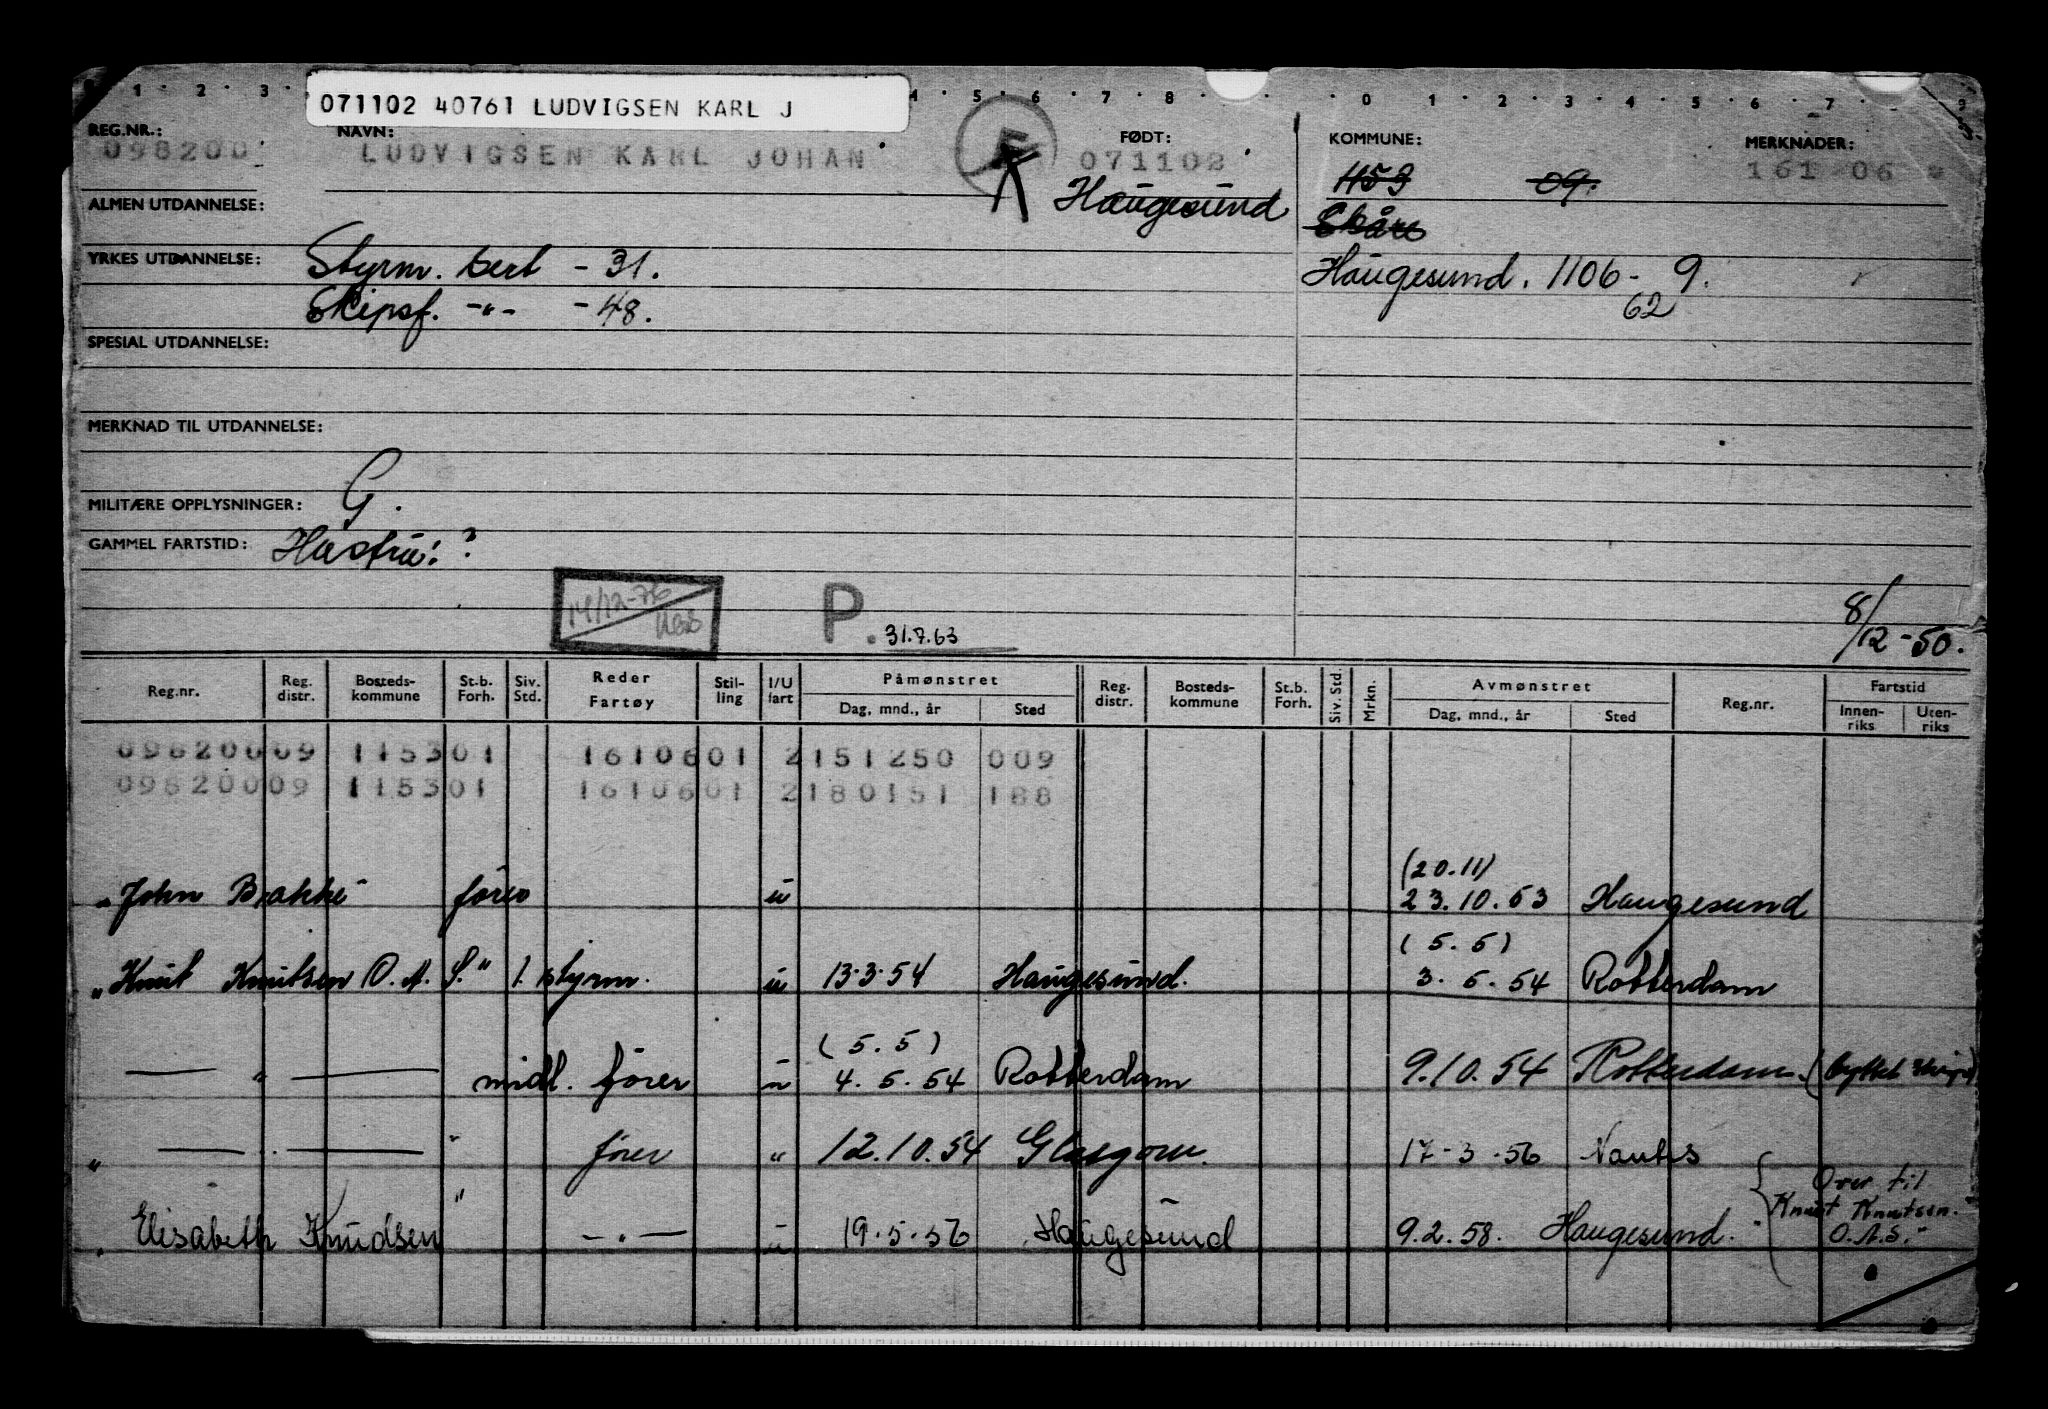 071102 40761 LUDVIGSEN KARL J
REG.NR.: NAVN: FØDT: KOMMUNE: MERKNADER:
098200 LUDVIGSEN KARL JOHAN 071102 1153 09. 161 06
ALMEN UTDANNELSE: Haugesund Skåre
YRKES UTDANNELSE: Styrm. sert - 31. Haugesund. 1106 - 9.
Skipsf. -"- - 48. 62
SPESIAL UTDANNELSE:
MERKNAD TIL UTDANNELSE:
MILITÆRE OPPLYSNINGER: G.
GAMMEL FARTSTID: Hustru: ?
14/12-76
P. 31.7.63
8/12-50.
Reg.nr. Reg. distr. Bosteds-kommune St.b. Forh. Siv. Std. Reder Fartøy Stil-ling I/U fart Påmønstret Reg. distr. Bosteds-kommune St.b. Forh. Siv. Std. Mrkn. Avmønstret Reg.nr. Fartstid
Dag, mnd., år Sted Dag, mnd., år Sted Innen-riks Uten-riks
09820009 115301 1610601 2151250 009
09820009 115301 1610601 2180151 188
(20.11)
"John Bakke" fører u 23.10.53 Haugesund
(5.5)
"Knut Knutsen O.A.S." 1 styrm. u 13.3.54 Haugesund. 3.5.54 Rotterdam
(5.5)
— " — midl. fører u 4.5.54 Rotterdam 9.10.54 Rotterdam. (byttet skip)
" — " — " fører " 12.10.54 Glasgow. 17-3-56 Nantes
"Elisabeth Knudsen" — " — u 19.5.56 Haugesund 9.2.58. Haugesund.
Over til
"Knut Knutsen.
O.A.S."